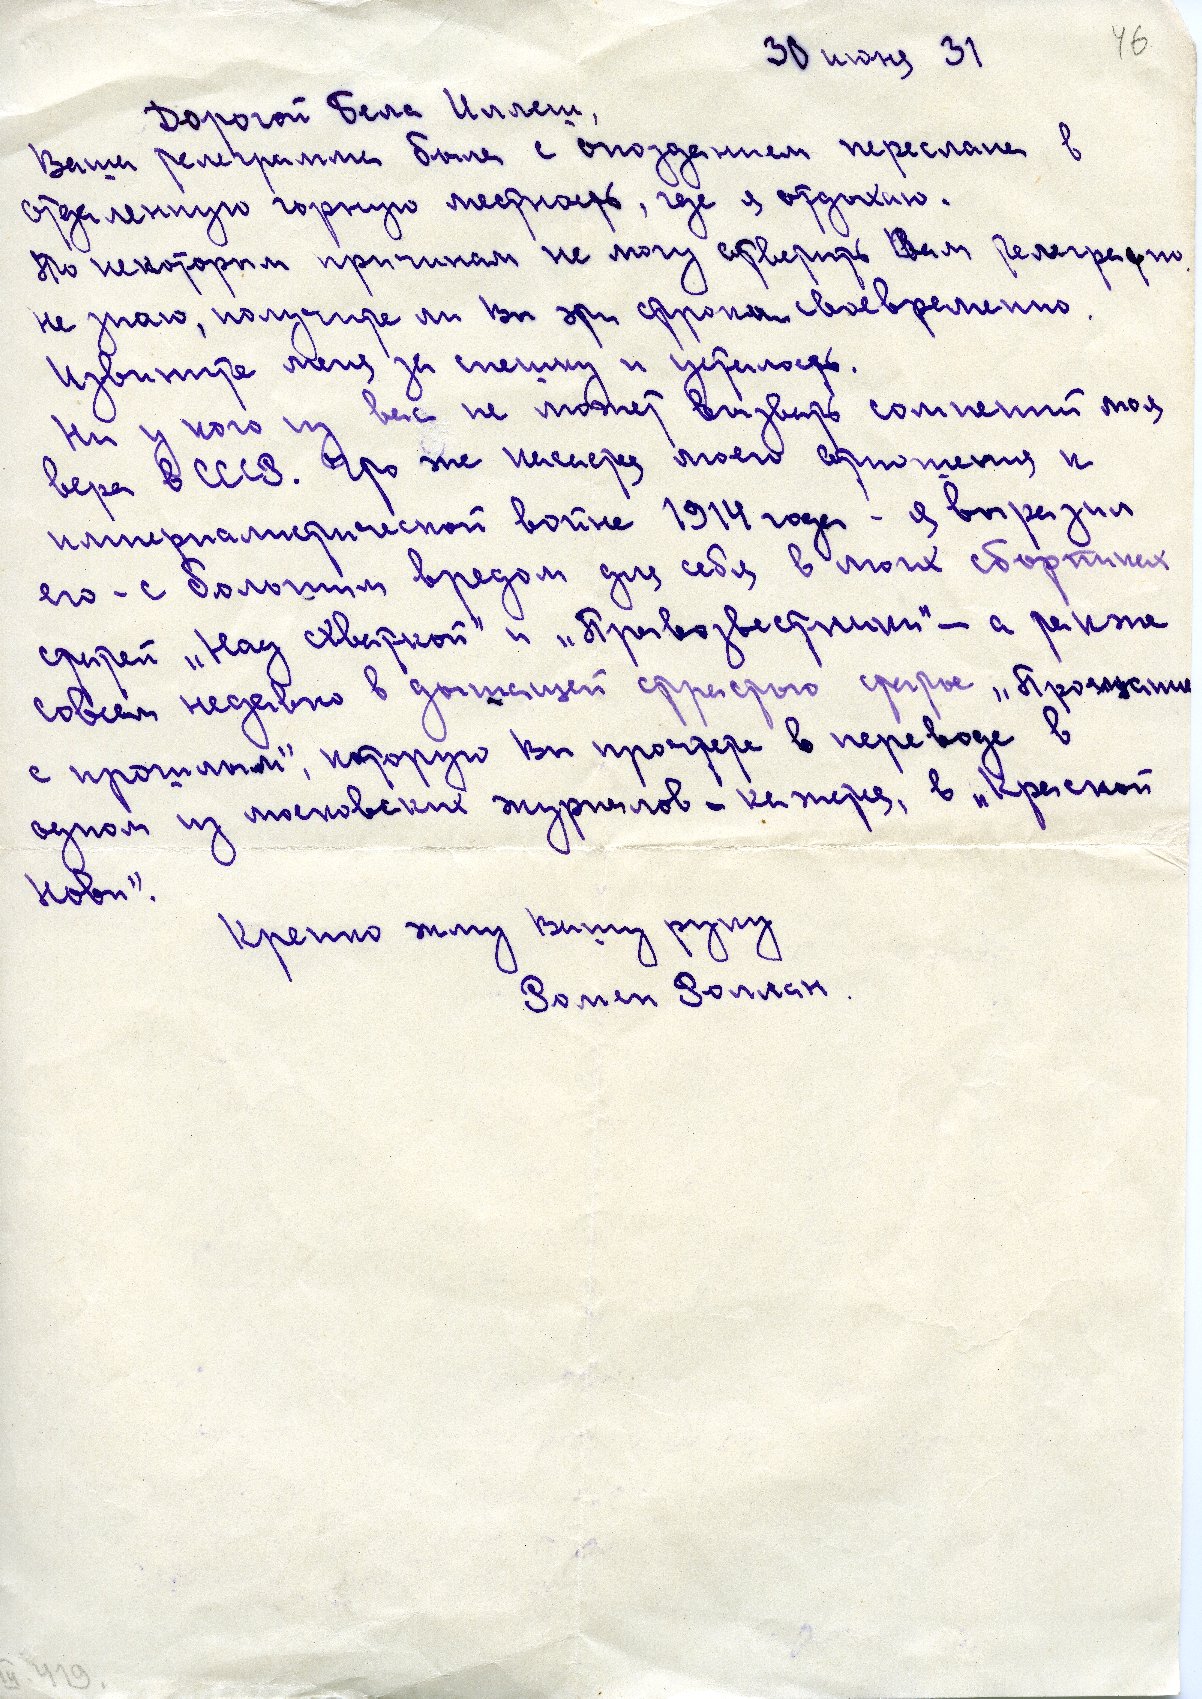 46
30 июня 31
Дорогой Бела Иллеш,
Ваша телеграмма была с опозданием переслана в
отдаленную горную местность, где я отдыхаю.
По некоторым причинам не могу ответить Вам телеграфно
не знаю, получите ли Вы эти строки своевременно.
Извините меня за спешку и усталость.
Ни у кого из вас не может вызвать сомнений моя
вера в СССР. Что же касается моего отношения к
империалистической войне 1914 года - я выразил
его - с большим вредом для себя в моих сборниках
статей „Над схваткой" и „Провозвестники" - а также
совсем недавно в дышащей страстью статье „Прощание
с прошлым", которую Вы прочтете в переводе в
одном из московских журналов - кажется, в „Красной
Нови".
Крепко жму Вашу руку
Ромен Роллан.
419.